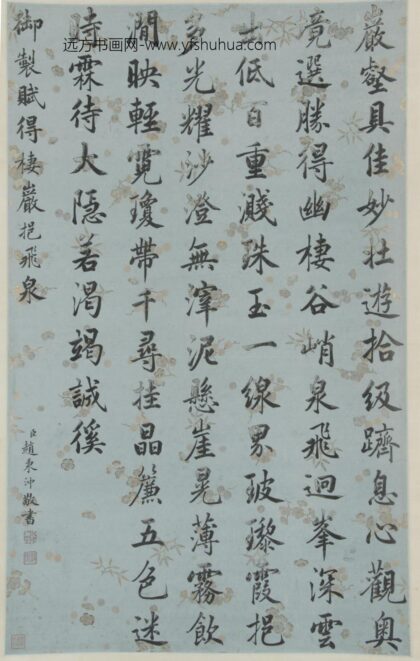 远方书画网-www.yfshuhua.com
巖壑具佳妙壯遊拾級躋息心觀奥
竟選勝得幽棲谷峭泉飛迥峯深雲
低百重濺珠玉一線界玻瓈霞挹
多光耀沙澄無滓泥懸崖晃薄霧飲
澗映輕霓瓊帶千尋挂晶簾五色迷
時霖待大隱若渴竭誠徯
御製賦得棲巖挹飛泉
臣趙秉沖敬書